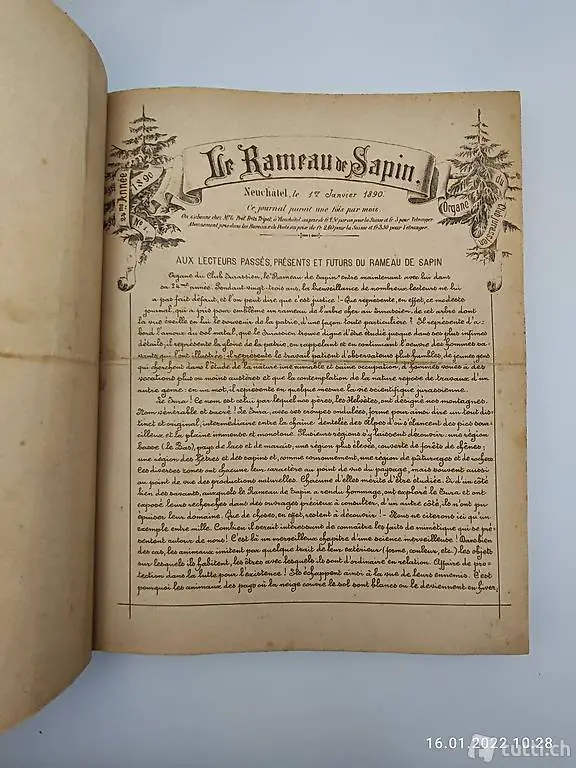 24me Année
1890
No 1.
Le Rameau de Sapin.
Organe
du
Club jurassien
Neuchatel, le 1er Janvier 1890.
Ce journal parait une fois par mois.
On s'abonne chez Mr le Prof. Fritz Tripet, à Neuchâtel au prix de fr par an pour la Suisse et fr 3 pour l'étranger
Abonnement pris dans les Bureaux de Poste au prix de fr 2.60 pour la Suisse et fr 3.50 pour l'étranger.
AUX LECTEURS PASSÉS, PRÉSENTS ET FUTURS DU RAMEAU DE SAPIN
Organe du Club Jurassien, le "Rameau de Sapin" entre maintenant avec lui dans
sa 24me année. Pendant vingt-trois ans, la bienveillance de nombreux lecteurs ne lui
a pas fait défaut, et l'on peut dire que c'est justice! - Que représente, en effet, ce modeste
journal, qui a pris pour emblème un rameau de l'arbre cher au Jurassien, de cet arbre dont
la vue éveille en lui le souvenir de la patrie, d'une façon toute particulière! Il représente d'a-
bord l'amour du sol natal, que le Jurassien trouve digne d'être étudié jusque dans ses plus infimes
détails, il représente la gloire de la patrie, en rappelant et en continuant l'oeuvre des hommes sa-
vants qui l'ont illustrée, il représente le travail patient d'observateurs plus humbles, de jeunes gens
qui cherchent dans l'étude de la nature une aimable et saine occupation, d'hommes voués à des
vocations plus ou moins austères et que la contemplation de la nature repose de travaux d'un
autre genre: en un mot, il représente en quelque mesure la vie scientifique jurassienne.
Le Jura! ce nom est celui par lequel nos pères, les Helvètes, ont désigné nos montagnes.
Nom vénérable et sacré! Le Jura, avec ses croupes ondulées, forme pour ainsi dire un tout dis-
tinct et original, intermédiaire entre la chaîne dentelée des Alpes d'où s'élancent des pics sour-
cilleux et la plaine immense et monotone. Plusieurs régions s'y laissent découvrir: une région
basse (le Bas), pays de lacs et de marais, une région plus élevée, couverte de forêts de chênes;
une région des hêtres et des sapins et, comme couronnement, une région de pâturages et de rochers.
Ces diverses zones ont chacune leur caractère au point de vue du paysage, mais souvent aussi
au point de vue des productions naturelles. Chacune d'elles mérite d'être étudiée. Si d'un côté
bien des savants, auxquels le Rameau de Sapin a rendu hommage, ont exploré le Jura et ont
exposé leurs recherches dans des ouvrages précieux à consulter, d'un autre côté, ils n'ont pu
épuiser leur domaine. Que de choses, en effet, restent à découvrir! - Nous ne citerons ici qu'un
exemple entre mille. Combien il serait intéressant de connaître les faits de mimétique qui se pré-
sentent autour de nous! C'est là un merveilleux chapitre d'une science merveilleuse! Dans bien
des cas, les animaux imitent par quelque trait de leur extérieur (forme, couleur, etc.) les objets
sur lesquels ils habitent, les êtres avec lesquels ils sont d'ordinaire en relation. Affaire de pro-
tection dans la lutte pour l'existence! Ils échappent ainsi à la vue de leurs ennemis. C'est
pourquoi les animaux des pays où la neige couvre le sol sont blancs ou le deviennent en hiver,
16.01.2022 10:28
tutti.ch